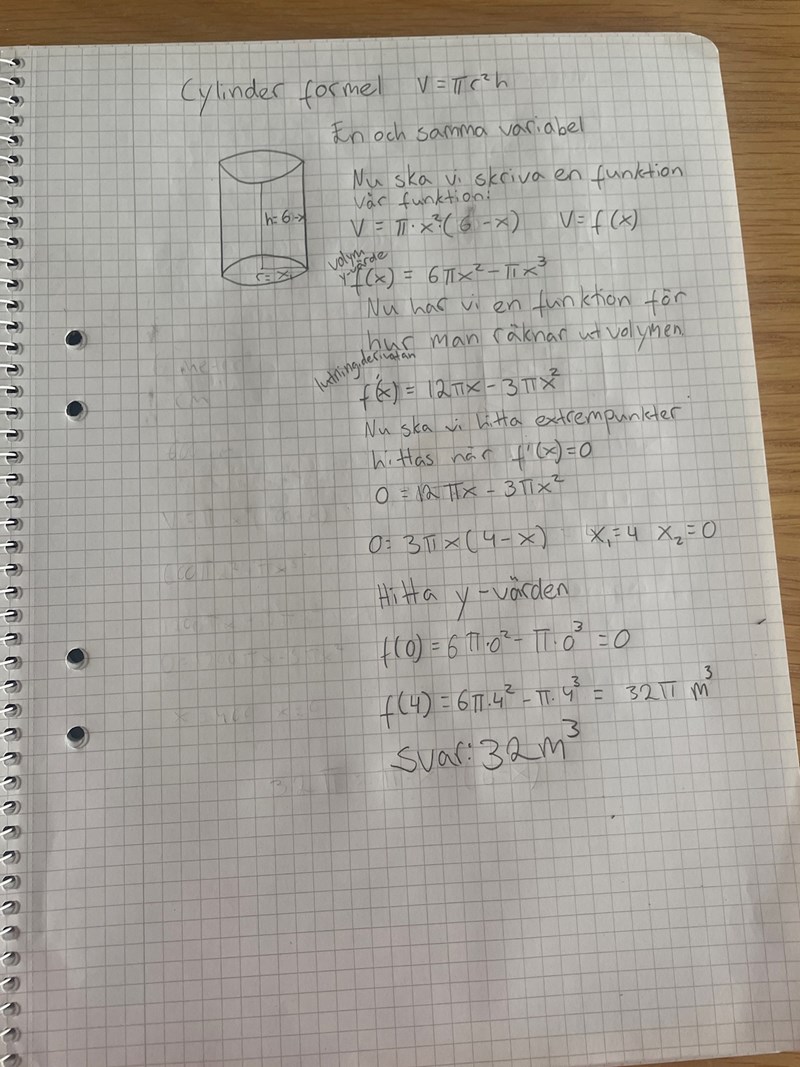 Cylinder formel V = πr²h
En och samma variabel
h=6-x
r=x
Nu ska vi skriva en funktion
vår funktion:
V = π·x²·(6-x) V=f(x)
volym
y-värde
f(x) = 6πx² - πx³
Nu har vi en funktion för
hur man räknar ut volymen
lutning derivatan
f'(x) = 12πx - 3πx²
Nu ska vi hitta extrempunkter
hittas när f'(x)=0
0 = 12πx - 3πx²
0= 3πx(4-x) x₁=4 x₂=0
Hitta y-värden
f(0) = 6π·0² - π·0³ = 0
f(4) = 6π·4² - π·4³ = 32π m³
Svar: 32m³